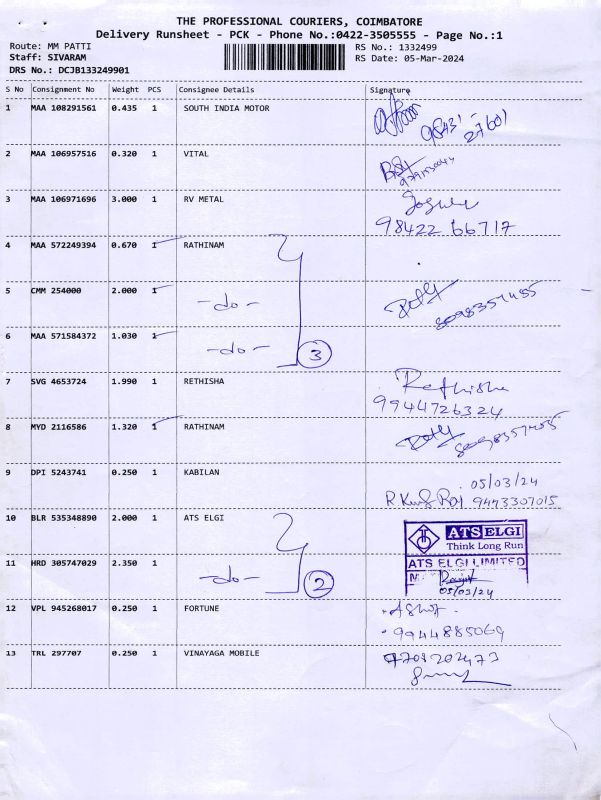 THE PROFESSIONAL COURIERS, COIMBATORE
Delivery Runsheet - PCK - Phone No.:0422-3505555 - Page No.:1
Route: MM PATTI RS No.: 1332499
Staff: SIVARAM RS Date: 05-Mar-2024
DRS No.: DCJB133249901
S No Consignment No Weight PCS Consignee Details Signature
1 MAA 108291561 0.435 1 SOUTH INDIA MOTOR
2 MAA 106957516 0.320 1 VITAL
3 MAA 106971696 3.000 1 RV METAL
98422 66717
4 MAA 572249394 0.670 1 RATHINAM
5 CMM 254000 2.000 1 -do-
6 MAA 571584372 1.030 1 -do- 3
7 SVG 4653724 1.990 1 RETHISHA Rethisha
9944726324
8 MYD 2116586 1.320 1 RATHINAM
9 DPI 5243741 0.250 1 KABILAN 05/03/24
9443307015
10 BLR 535348890 2.000 1 ATS ELGI ATS ELGI
Think Long Run
11 HRD 305747029 2.350 1 -do- 2 ATS ELGI LIMITED
05/03/24
12 VPL 945268017 0.250 1 FORTUNE
9944885069
13 TRL 297707 0.250 1 VINAYAGA MOBILE